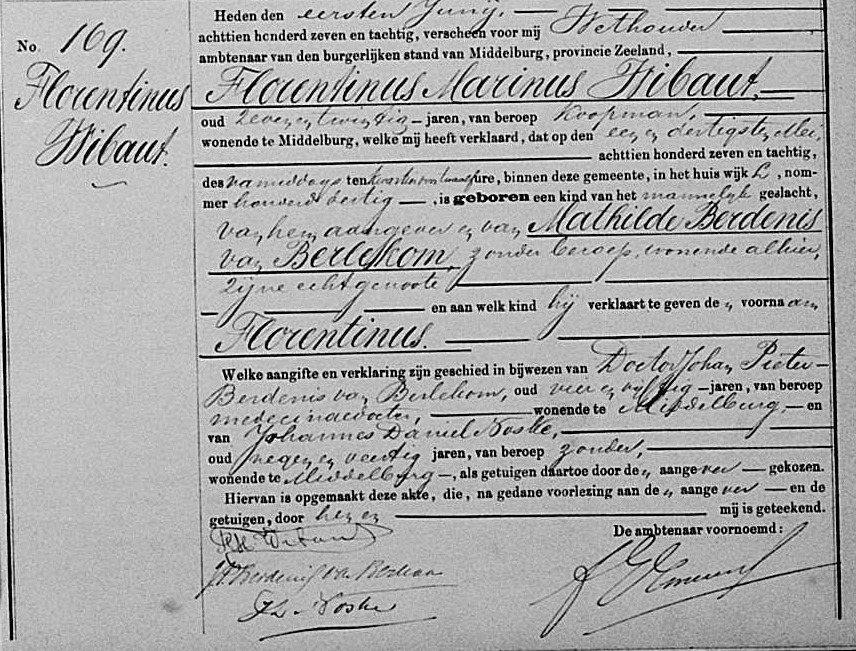 No. 169.
Florentinus
Wibaut.
Heden den eersten Junij,
achttien honderd zeven en tachtig, verscheen voor mij Wethouder
ambtenaar van den burgerlijken stand van Middelburg, provincie Zeeland,
Florentinus Marinus Wibaut,
oud zeven en twintig jaren, van beroep Koopman,
wonende te Middelburg, welke mij heeft verklaard, dat op den een en dertigsten Mei,
achttien honderd zeven en tachtig,
des namiddags ten kwartier voor twaalf ure, binnen deze gemeente, in het huis wijk L, nom-
mer honderd dertig, is geboren een kind van het mannelijk geslacht,
van hem aangever en van Mathilde Berdenis
van Berlekom, zonder beroep, wonende alhier,
zijne echtgenoote
en aan welk kind hij verklaart te geven den voornaam
Florentinus.
Welke aangifte en verklaring zijn geschied in bijwezen van Doctor Johan Pieter
Berdenis van Berlekom, oud vier en vijftig jaren, van beroep
medicinae doctor, wonende te Middelburg, en
van Johannes Daniel Noske,
oud negen en veertig jaren, van beroep zonder,
wonende te Middelburg, als getuigen daartoe door den aangever gekozen.
Hiervan is opgemaakt deze akte, die, na gedane voorlezing aan den aangever en de
getuigen, door hen en mij is geteekend.
De ambtenaar voornoemd:
Wibaut
Berdenis van Berlekom
Noske